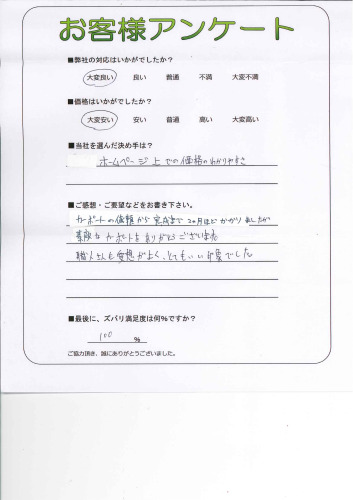 お客様アンケート
■弊社の対応はいかがでしたか？
大変良い 良い 普通 不満 大変不満
■価格はいかがでしたか？
大変安い 安い 普通 高い 大変高い
■当社を選んだ決め手は？
ホームページ上での価格のわかりやすさ
■ご感想・ご要望などをお書き下さい。
カーポートの依頼から完成まで2ヶ月ほどかかりましたが
素敵なカーポートをありがとうございます
職人さんも愛想がよく、とてもいい印象でした
■最後に、ズバリ満足度は何%ですか？
100 %
ご協力頂き、誠にありがとうございました。